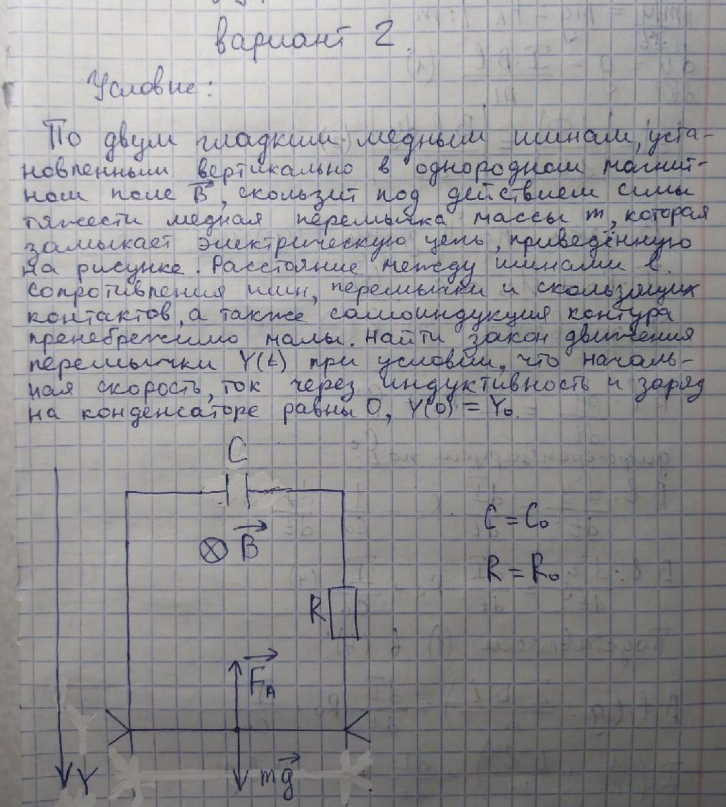 вариант 2.
Условие:
По двум гладким медным шинам, уста-
новленным вертикально в однородном магнит-
ном поле B, скользит под действием силы
тяжести медная перемычка массы m, которая
замыкает электрическую цепь, приведённую
на рисунке. Расстояние между шинами l.
Сопротивления шин, перемычки и скользящих
контактов, а также самоиндукция контура
пренебрежимо малы. Найти закон движения
перемычки Y(t) при условии, что началь-
ная скорость, ток через индуктивность и заряд
на конденсаторе равны 0, Y(0) = Y₀.
C
B
C = C₀
R = R₀
R
F_A
Y
mg